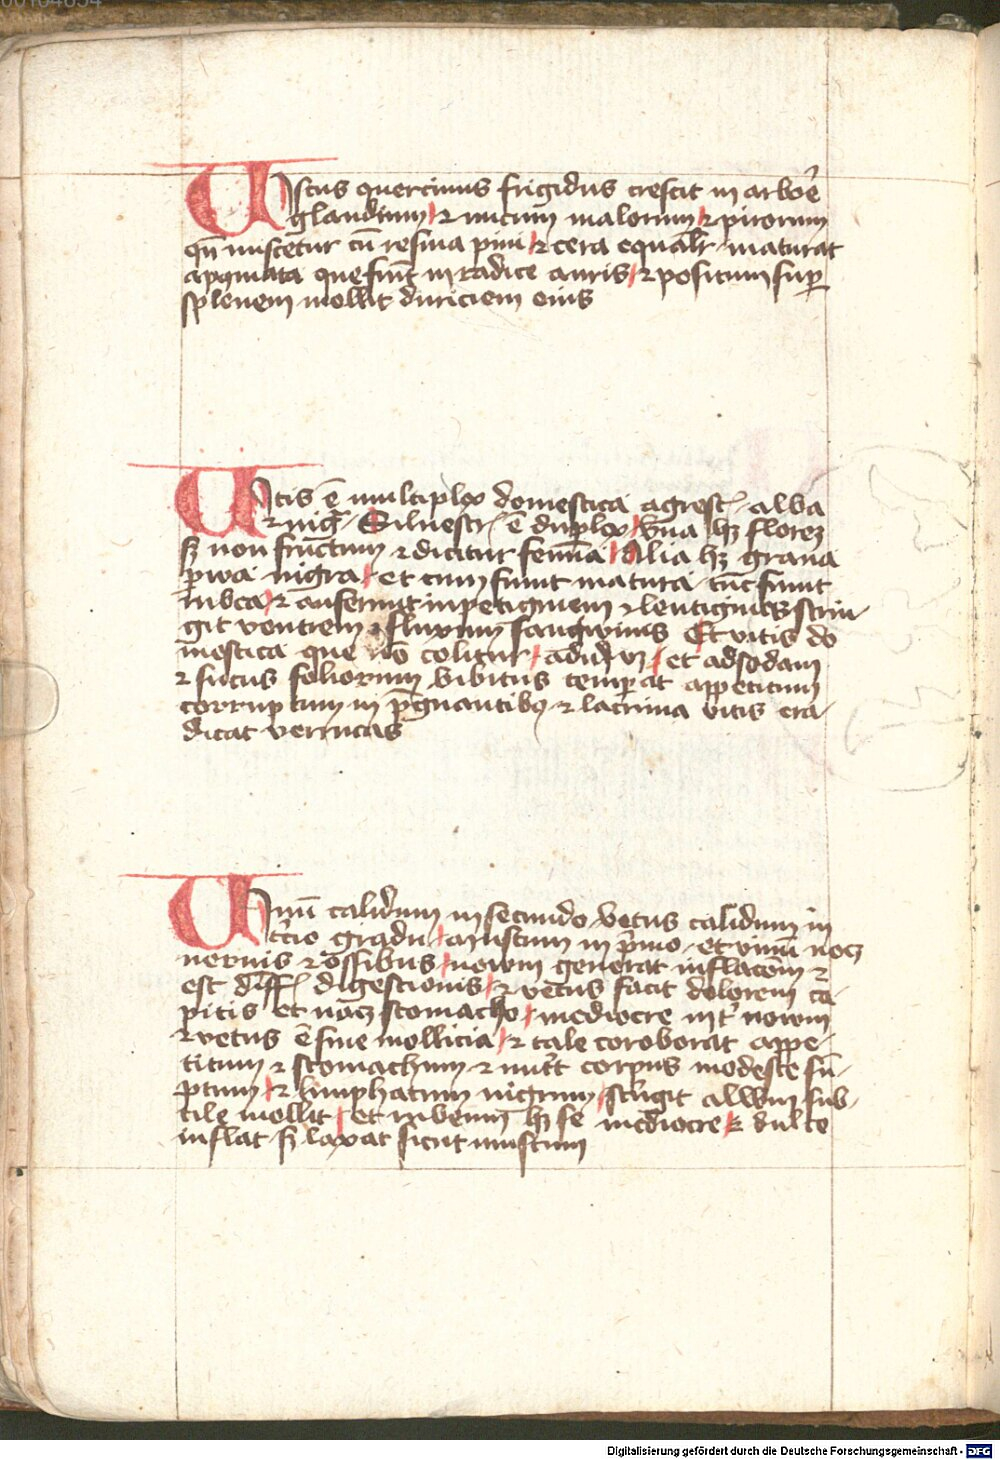 Viscus quercinus frigidus crescit in arbore᷑
glandium / ⁊ nucum malorum / ⁊ pirorum
qn̄ miscetur cū resina pini / ⁊ cera equalr̄ · maturat
apg̅mata que sunt in radice auris / ⁊ positum suꝑ
splenem mollit duriciem eius
Vitis ē multiplex domestica agrest᷑ · alba
⁊ nig᷑ · Siluestr᷑ ē duplex / Vna hꝫ flores
sꝫ non fructum ⁊ dicitur femīa / Alia hꝫ grana
ꝑua nigra / et cum sunt matura · tūc sunt
rubea / ⁊ auferunt inpetiginem ⁊ lentigines strin-
git ventrem ⁊ fluxum sangwinis Et vitis do
mestica que nō colitur /
⁊ sucus foliorum bibitus temꝑat appetitum
corruptum in p̄gnantibꝫ ⁊ lacrima vitis era-
dicat verrucas
Vinū calidum in secundo · vetus calidum in
t᷑cio gradu / mustum in p᷑mo · et vinū nocꝫ
neruis ⁊ ossibus / nowm generat inflacōem ⁊
est diff᷑ digestionis / ⁊ vetus facit dolorem ca-
pitis et nocꝫ stomacho / mediocre int᷑ nowm
⁊ vetus ē sine mollicia / ⁊ tale coroborat appe-
titum ⁊ stomachum ⁊ nut᷑t corpus modeste sū-
ptum / ⁊ limphatum nigrum / st᷑ngit alwm sub-
tile mollit / et rubeum hꝫ se mediocre / ⁊ dulce
inflat sꝫ laxat sicut mustum
Digitalisierung gefördert durch die Deutsche Forschungsgemeinschaft - DFG